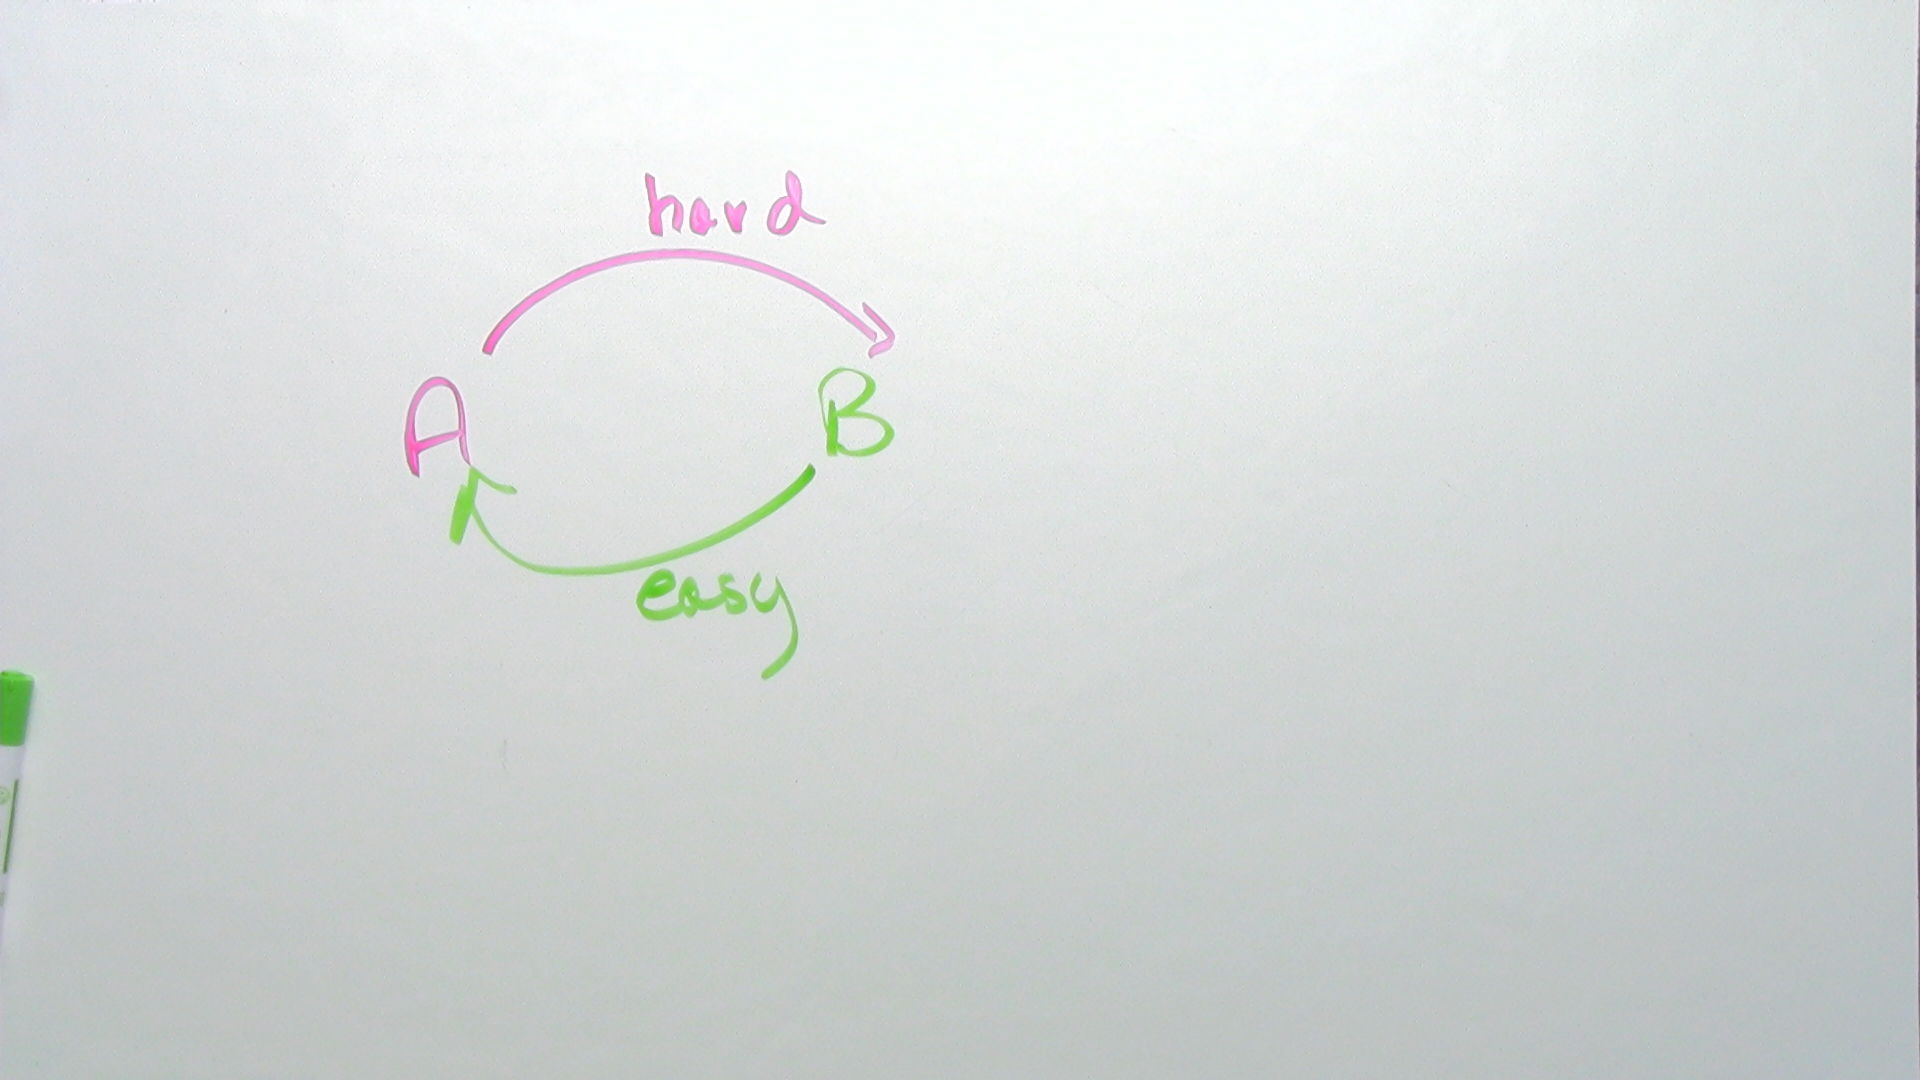 hard
A B
easy